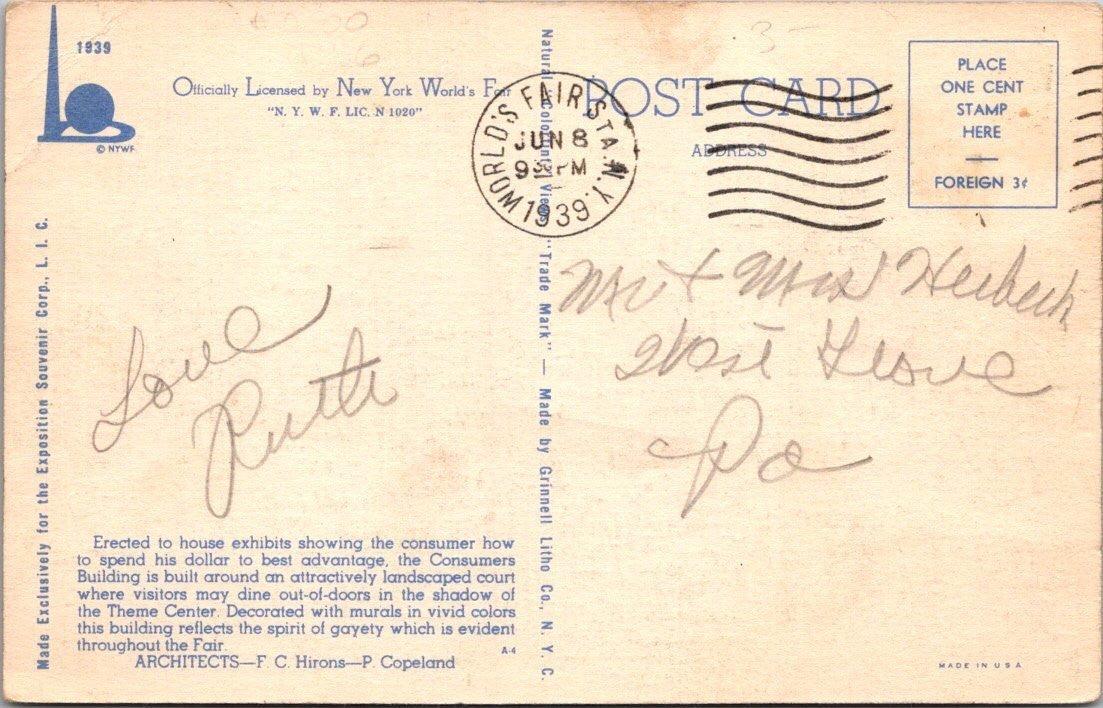 1939
© NYWF
Officially Licensed by New York World's Fair
"N. Y. W. F. LIC. N 1020"
Made Exclusively for the Exposition Souvenir Corp., L. I. C.
Love
Ruth
Erected to house exhibits showing the consumer how
to spend his dollar to best advantage, the Consumers
Building is built around an attractively landscaped court
where visitors may dine out-of-doors in the shadow of
the Theme Center. Decorated with murals in vivid colors
this building reflects the spirit of gayety which is evident
throughout the Fair.
A-4
ARCHITECTS—F. C. Hirons—P. Copeland
Natural Color Views "Trade Mark" — Made by Grinnell Litho Co., N. Y. C.
WORLD'S FAIR STA. N.Y.
JUN 8
9 30 PM
1939
POST CARD
ADDRESS
PLACE
ONE CENT
STAMP
HERE
FOREIGN 3¢
3-
Mr + Mrs
West Grove
Pa
MADE IN USA